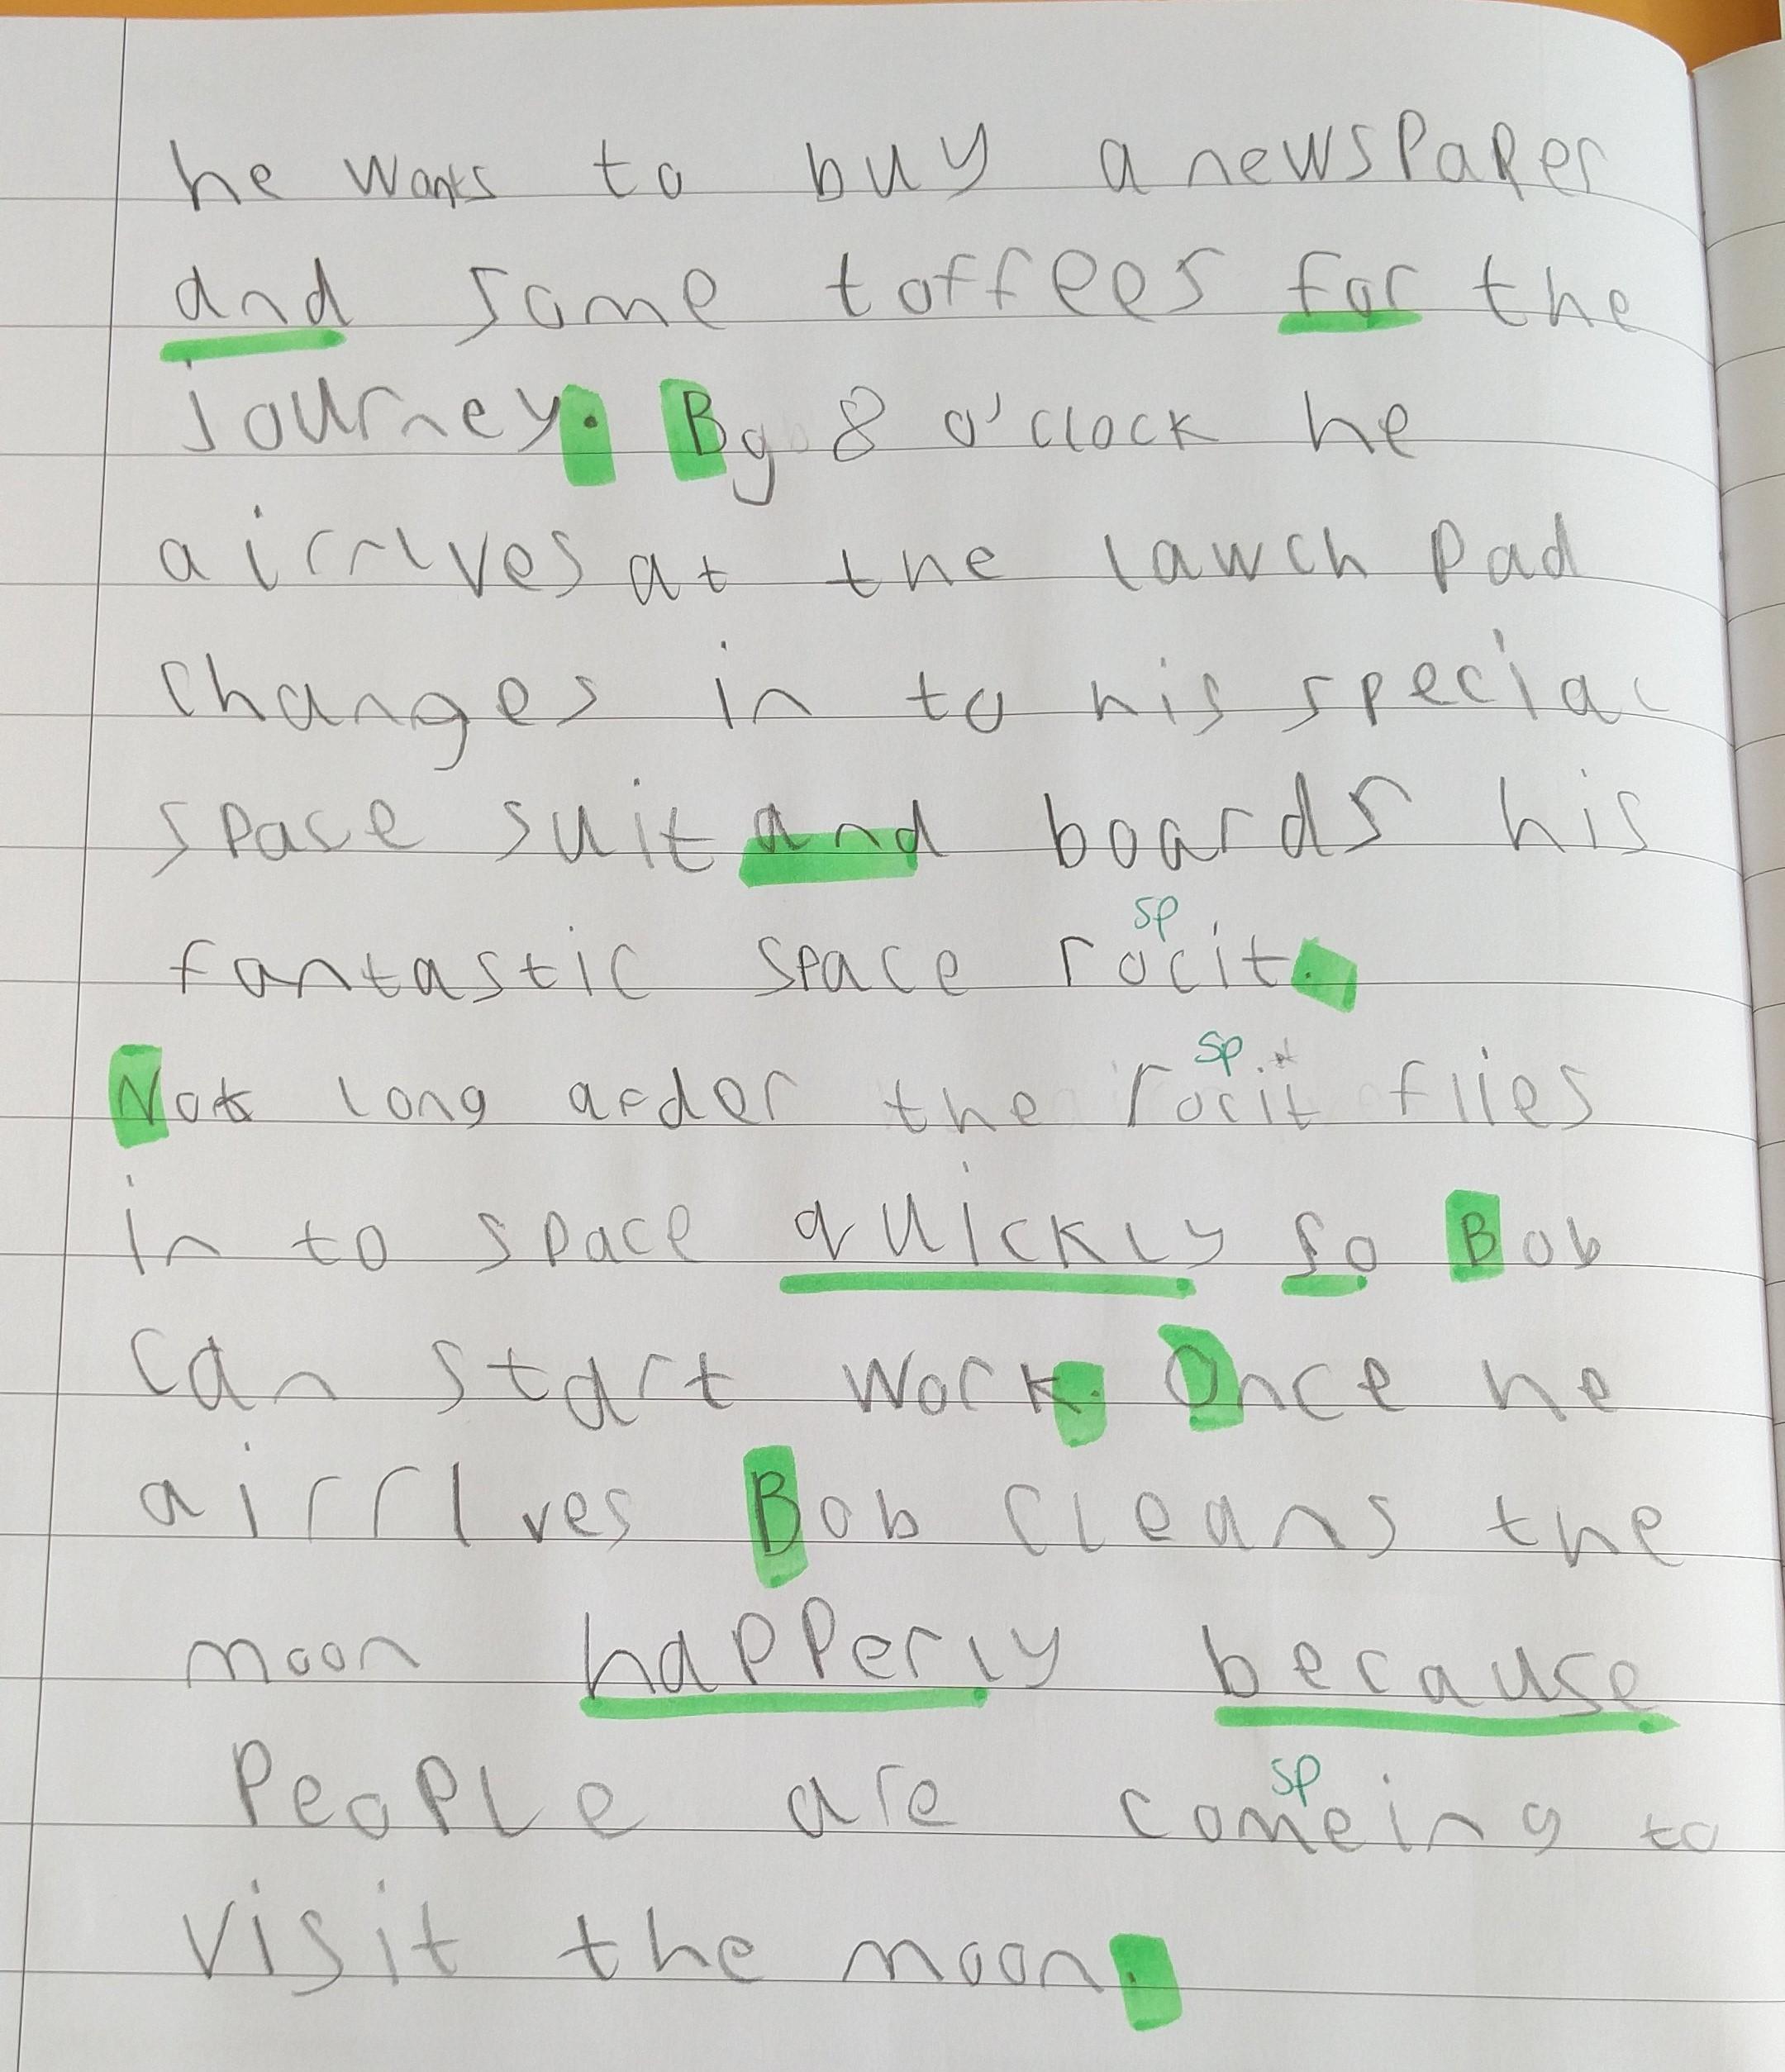 he wants to buy a newspaper
and some toffees for the
journey. By 8 o'clock he
airrives at the lawch pad
changes in to his special
space suit and boards his
sp
fantastic space rocit.
sp
Not long afder the rocit flies
in to space quickly so Bob
can start work. Once he
airrives Bob cleans the
moon happerly because
sp
people are comeing to
visit the moon.